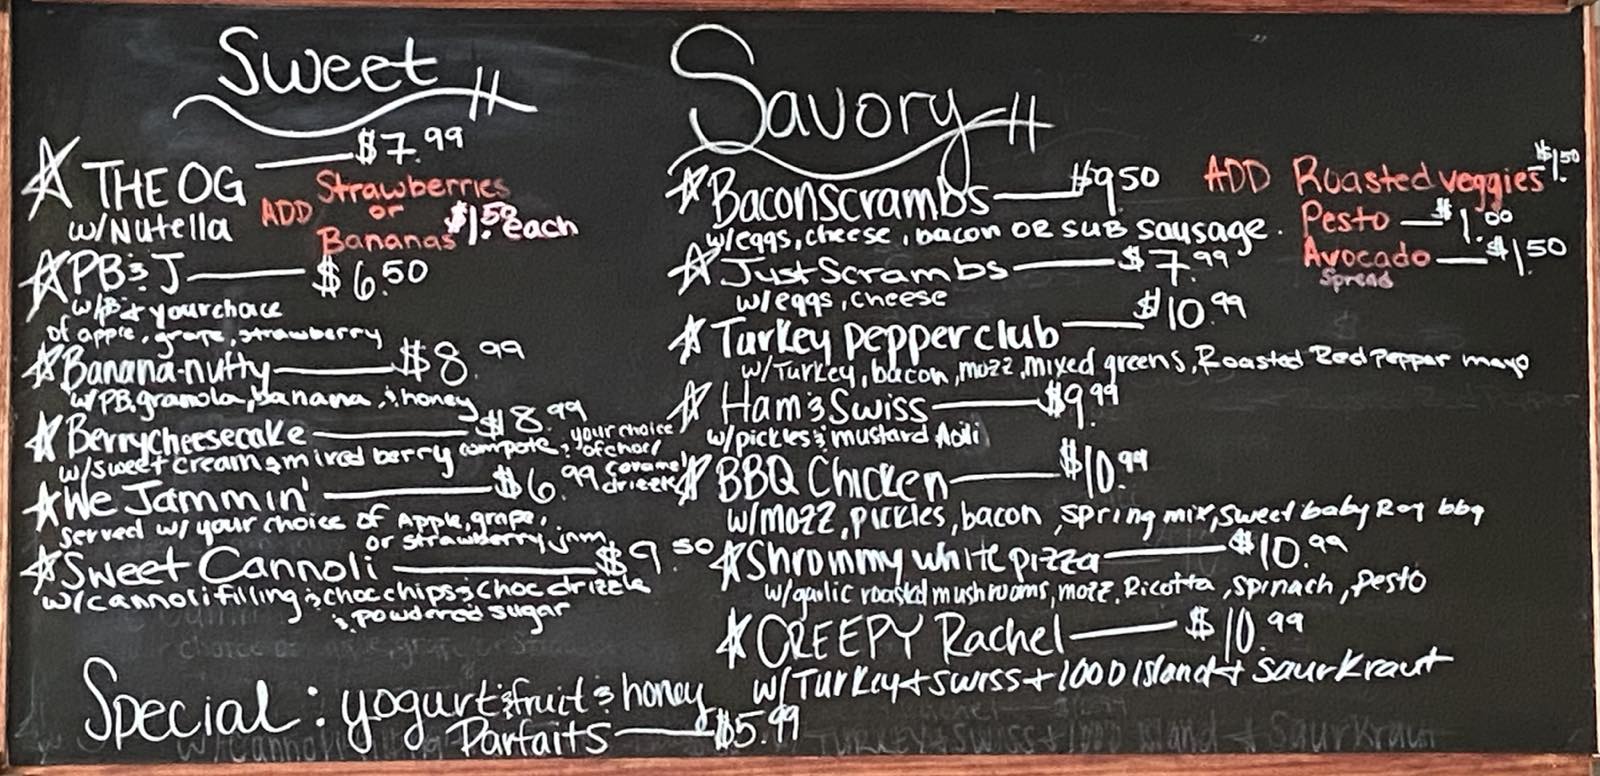 Sweet
THE OG $7.99
w/Nutella
ADD Strawberries
or
Bananas $1.50 each
PB & J $6.50
w/PB & your choice
of apple, grape, strawberry
Banana-nutty $8.99
w/PB, granola, banana, & honey
Berrycheesecake $8.99
w/sweet cream & mixed berry compote & your choice
of choc/
caramel
drizzle
We Jammin' $6.99
served w/ your choice of Apple, grape,
or strawberry jam
Sweet Cannoli $9.50
w/cannoli filling & choc chips & choc drizzle
& powdered sugar
Special: yogurt & fruit & honey
Parfaits $5.99
Savory
Baconscrambs $9.50
w/eggs, cheese, bacon OR SUB sausage.
Just Scrambs $7.99
w/eggs, cheese
Turkey pepper club $10.99
w/Turkey, bacon, mozz, mixed greens, Roasted Red Pepper mayo
Ham & Swiss $9.99
w/pickles & mustard Aoili
BBQ Chicken $10.99
w/mozz, pickles, bacon, spring mix, sweet baby Ray bbq
Shrommy white pizza $10.99
w/garlic roasted mushrooms, mozz, Ricotta, spinach, pesto
CREEPY Rachel $10.99
w/Turkey + swiss + 1000 island + saurkraut
ADD Roasted veggies $1.50
Pesto $1.00
Avocado $1.50
Spread